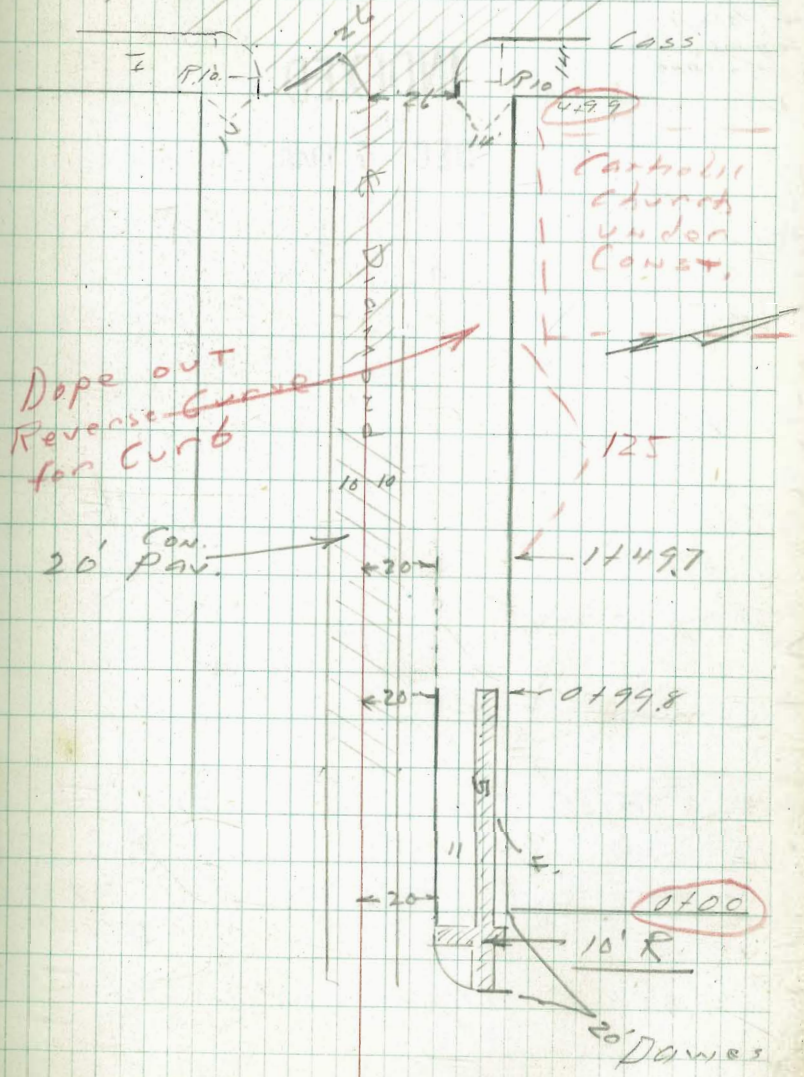 Cass
R10
R10
14'
26
14
14'
4+9.9
Catholic
Church
under
Const.
Diamond
Dope out
Reverse Curve
for Curb
125
10 10
20' Con.
Pav.
20
1+49.7
20
0+99.8
5
11
20
0+00
10' R
20'
Dawes